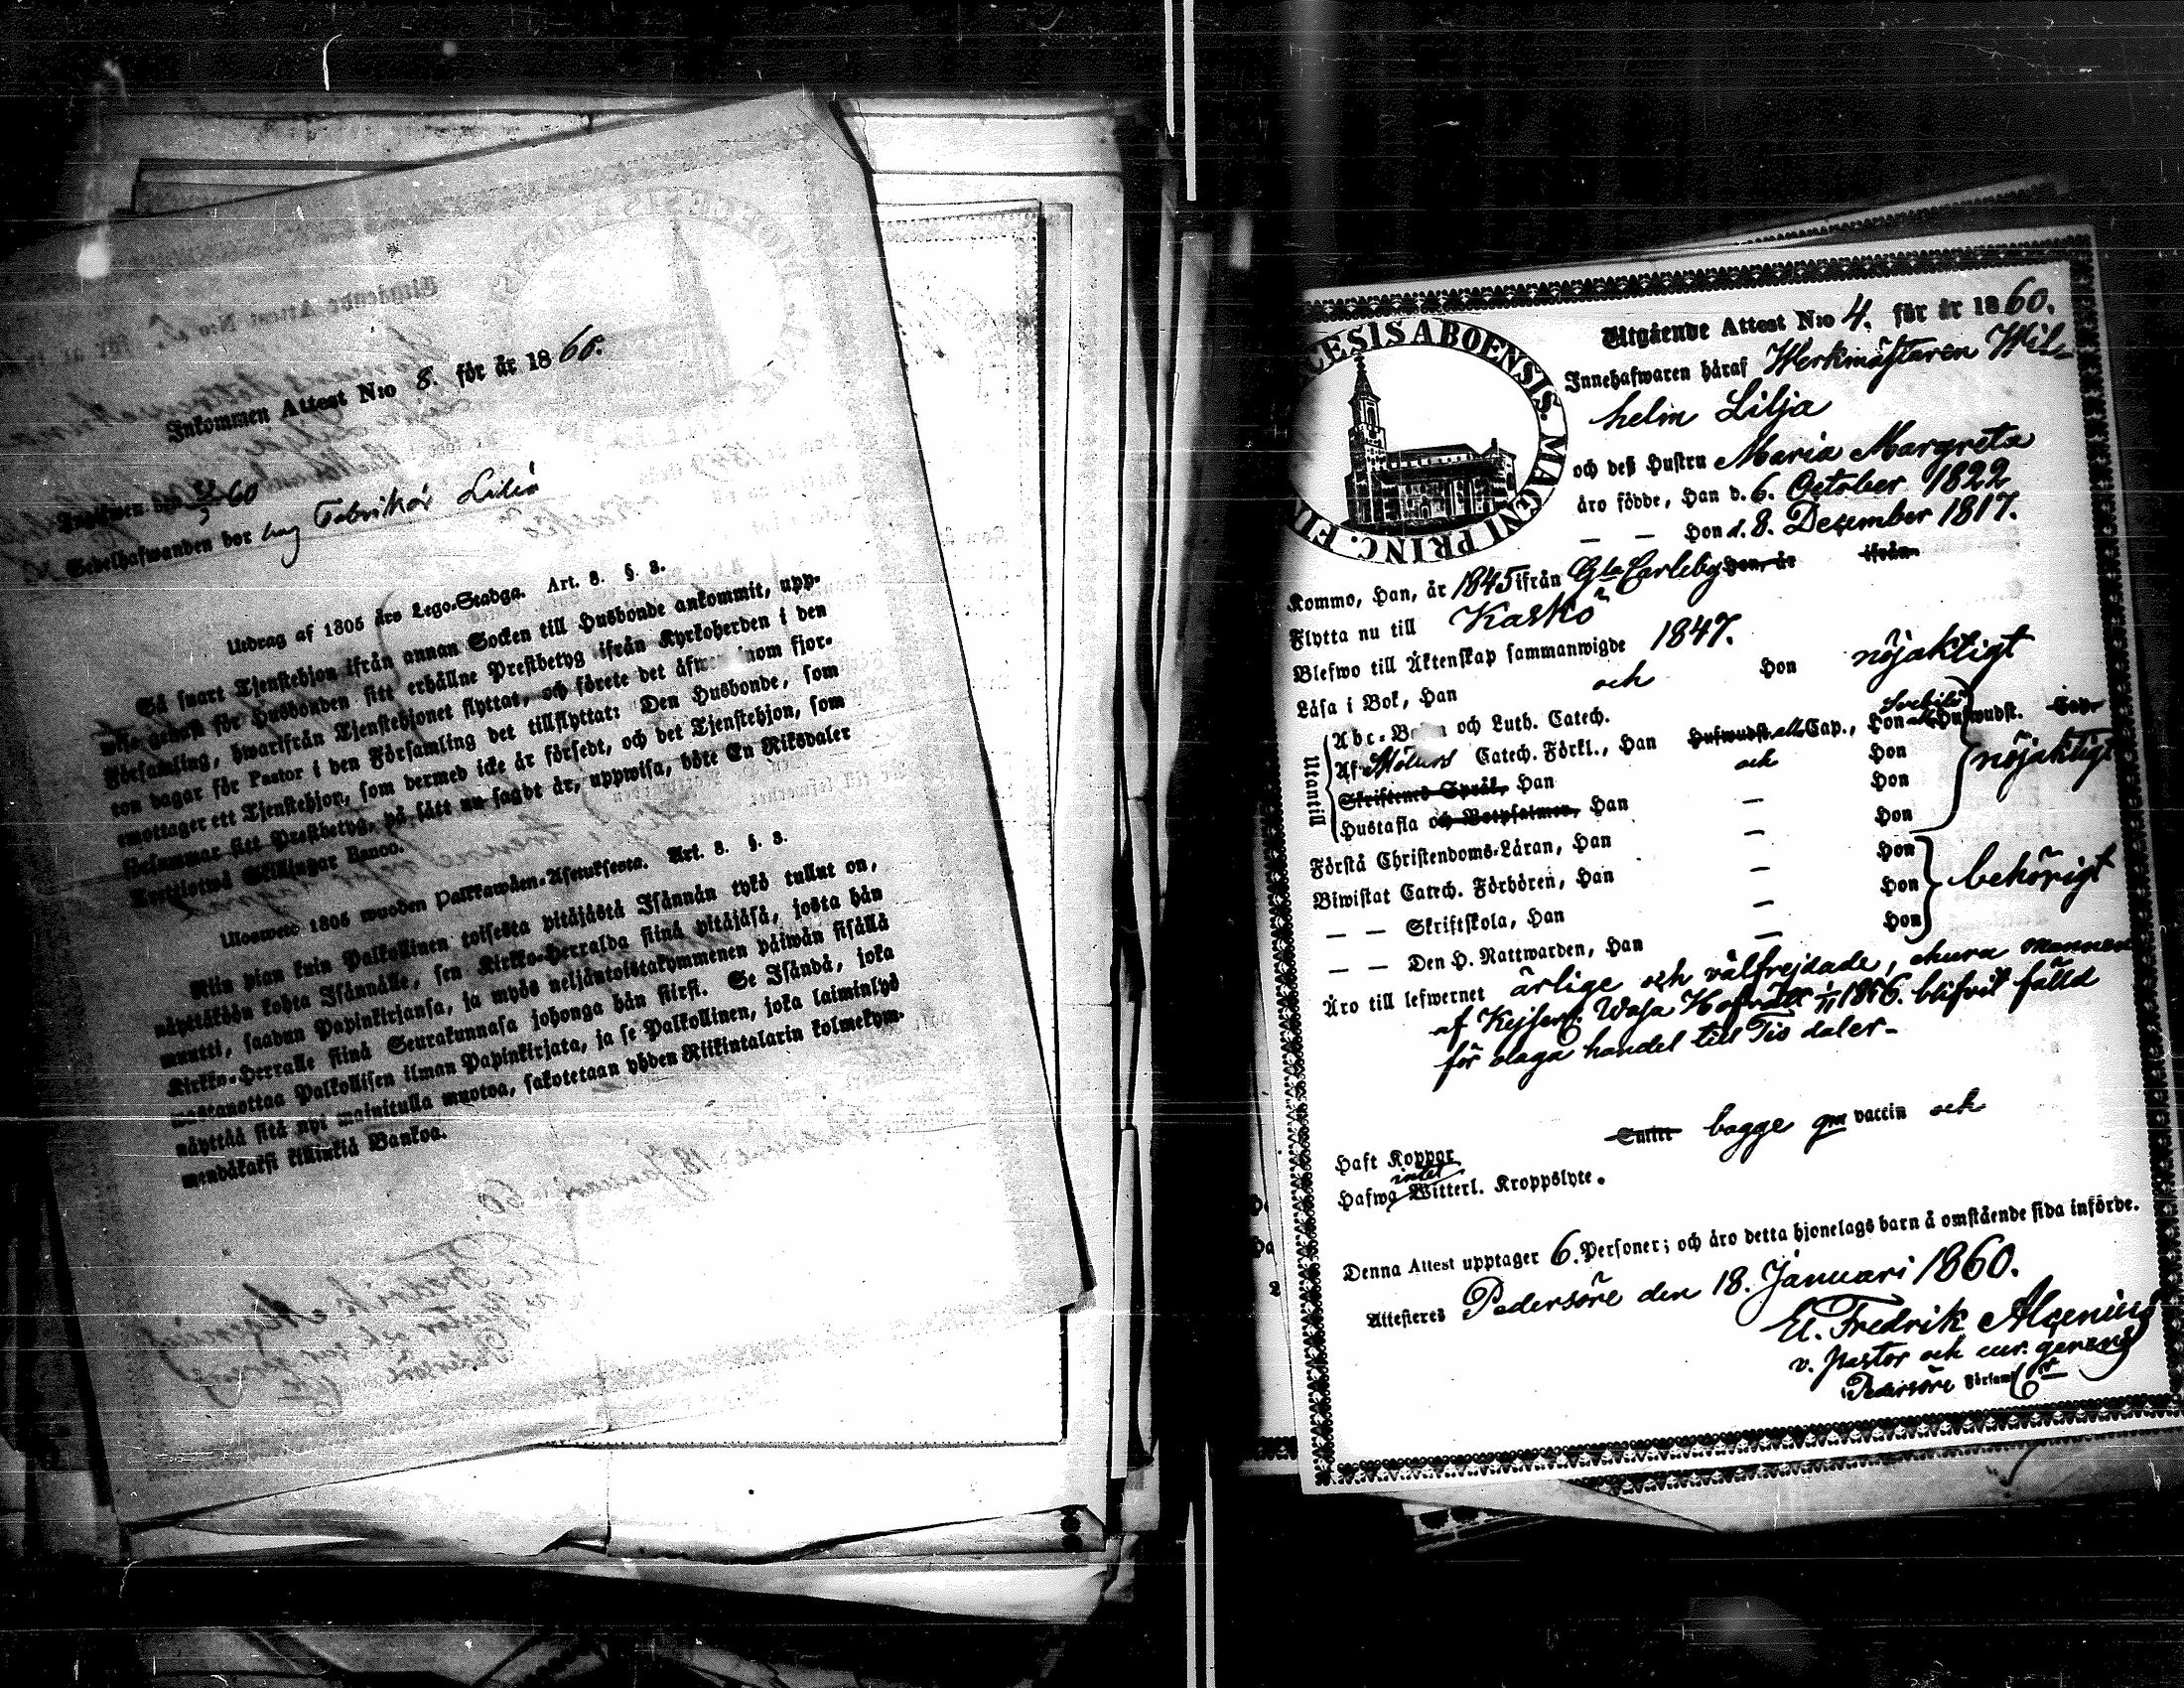 Inkommen Attest N:o 8. för år 1860.
60
Sedelhafwanden bor hos Fabrikör Lilja
Utdrag af 1805 års Lego-Stadga. Art. 8. §. 3.
Så snart Tjenstehjon ifrån annan Socken till Husbonde ankommit, upp-
wise genast för Husbonden sitt erhållne Prestbetyg ifrån Kyrkoherden i den
Församling, hwarifrån Tjenstehjonet flyttat, och förete det inom fjor-
ton dagar för Pastor i den Församling det tillflyttat: Den Husbonde, som
emottager ett Tjenstehjon, som dermed icke är försedt, och det Tjenstehjon, som
försummar sitt Prestbetyg, på sätt nu sagdt är, uppwisa, böte En Riksdaler
Trettiotwå Skillingar Banco.
Ulosweto 1805 wuoden Palkkawäen-Asetuksesta. Art. 8. §. 3.
Niin pian kuin Palkollinen toisesta pitäjästä Isännän tykö tullut on,
näyttäköön kohta Isännälle, sen Kirkko-Herralda siinä pitäjäsä, josta hän
muutti, saadun Papinkirjansa, ja myös neljäntoistakymmenen päiwän sisällä
Kirkko-Herralle siinä Seurakunnasa johonga hän siirsi. Se Isändä, joka
wastanottaa Palkollisen ilman Papinkirjata, ja se Palkollinen, joka laiminlyö
näyttää sitä nyt mainitulla muotoa, sakotetaan yhden Riikintalarin kolmekym-
mendäkaksi killinkiä Bankoa.
CESIS ABOENSIS. MAGNI PRINC. FIN
Utgående Attest N:o 4. för år 1860.
Innehafwaren häraf Werkmästaren Wil-
helm Lilja
och deß Hustru Maria Margreta
äro födde, Han d. 6. October 1822
— — Hon d. 8. December 1817.
Kommo, Han, år 1845 ifrån Gla Carleby Hon, år ifrån
Flytta nu till Kaskö
Blefwo till Äktenskap sammanwigde 1847.
Läsa i Bok, Han och Hon nöjaktigt
Utantill
Abc-Boken och Luth. Catech.
Af Catech. Förkl., Han Hufwudst. Cap., Hon Hufwudst. Cap.
Skriftenes Språk, Han och Hon nöjaktigt
Hustafla och Botpsalmen, Han — Hon
Förstå Christendoms-Läran, Han — Hon
Biwistat Catech. Förhören, Han — Hon behörigt
— — Skriftskola, Han — Hon
— — Den H. Nattwarden, Han — Hon
Äro till lefwernet ärlige och välfrejdade, ehuru mannen
af Kejserl. Wasa Hofrätt blifvit fälld
för olaga handel till Tio daler-
Haft Koppor Smitt bägge gm vaccin och
Hafwa intet Witterl. Kroppslyte.
Denna Attest upptager 6. Personer; och äro detta hjonelags barn å omstående sida införde.
Attesteres Pedersöre den 18. Januari 1860.
El. Fredrik Algenius
v. pastor och cur. gerens
Pedersöre Församl.